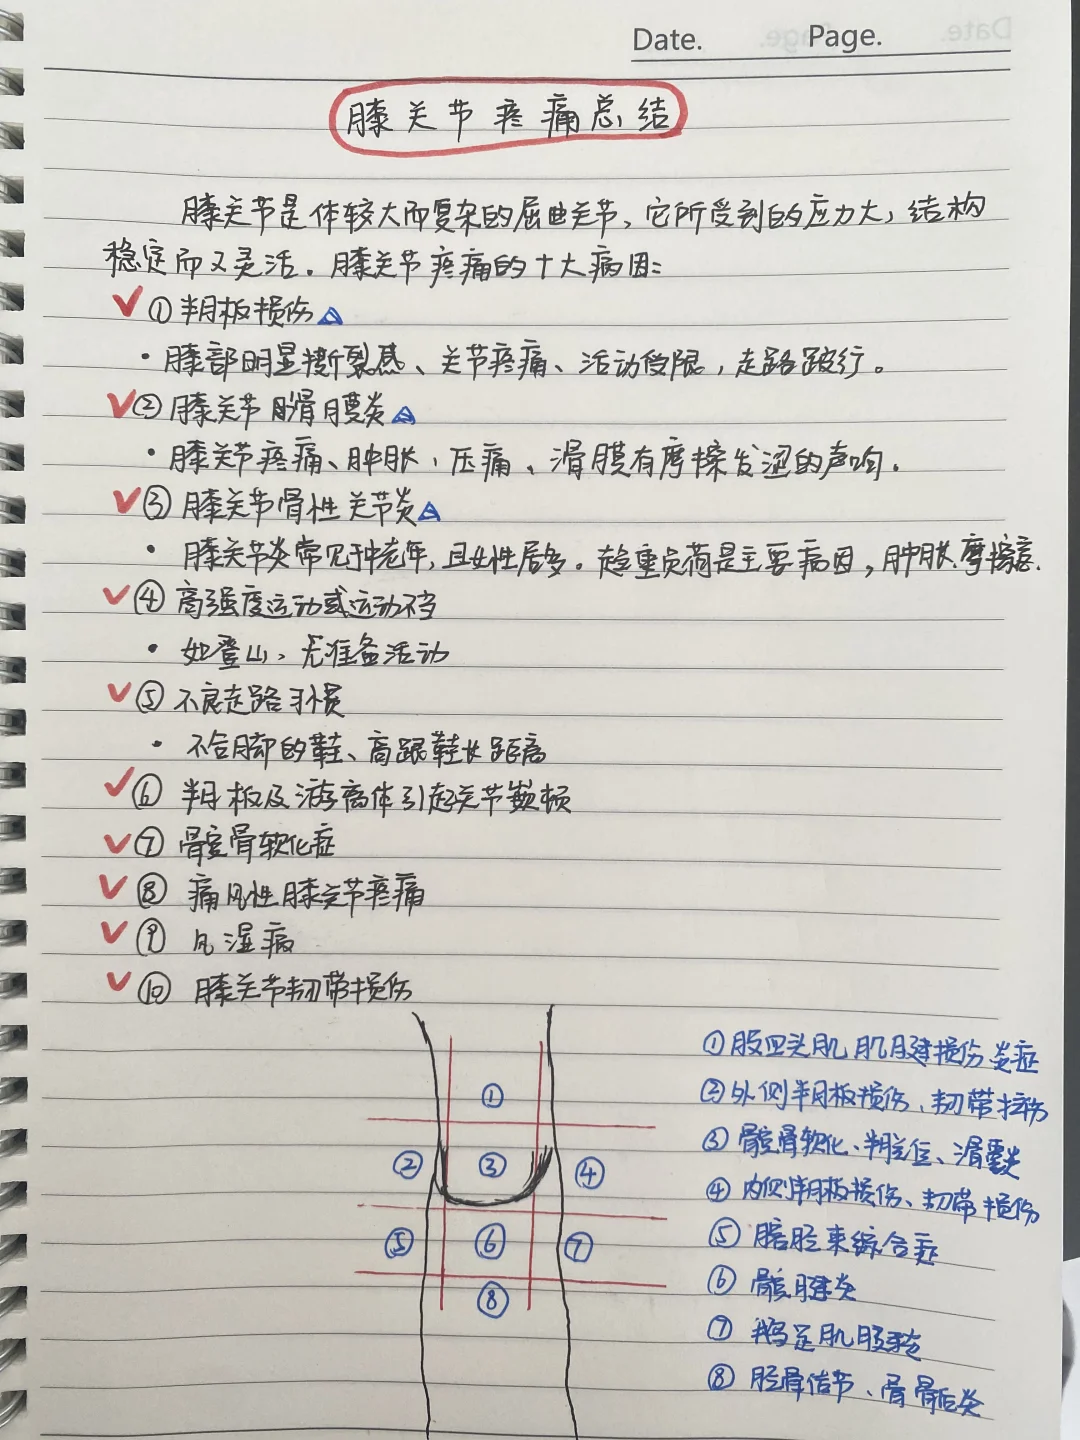 Date.
Page.
膝关节疼痛总结
膝关节是体较大而复杂的屈曲关节、它所受到的应力大,结构
稳定而又灵活。膝关节疼痛的十大病因:
①半月板损伤
·膝部明显撕裂感、关节疼痛、活动受限,走路跛行。
②膝关节滑膜炎
·膝关节疼痛、肿胀、压痛、滑膜有摩擦发涩的声响.
③膝关节骨性关节炎
·膝关节炎常见于中老年,且女性居多。超重负荷是主要病因,肿胀.摩擦音.
④高强度运动或运动不当
·如登山、无准备活动
⑤不良走路习惯
·不合脚的鞋、高跟鞋长距离
⑥半月板及游离体引起关节
⑦髌骨软化症
⑧痛风性膝关节疼痛
⑨风湿病
⑩膝关节韧带损伤
① ② ③ ④ ⑤ ⑥ ⑦ ⑧
①股四头肌肌腱损伤炎症
②外侧半月板损伤、韧带拉伤
③髌骨软化、半脱位、滑囊炎
④内侧半月板损伤、韧带损伤
⑤髂胫束综合症
⑥髌腱炎
⑦鹅足肌腱
⑧胫骨结节、骨骺炎